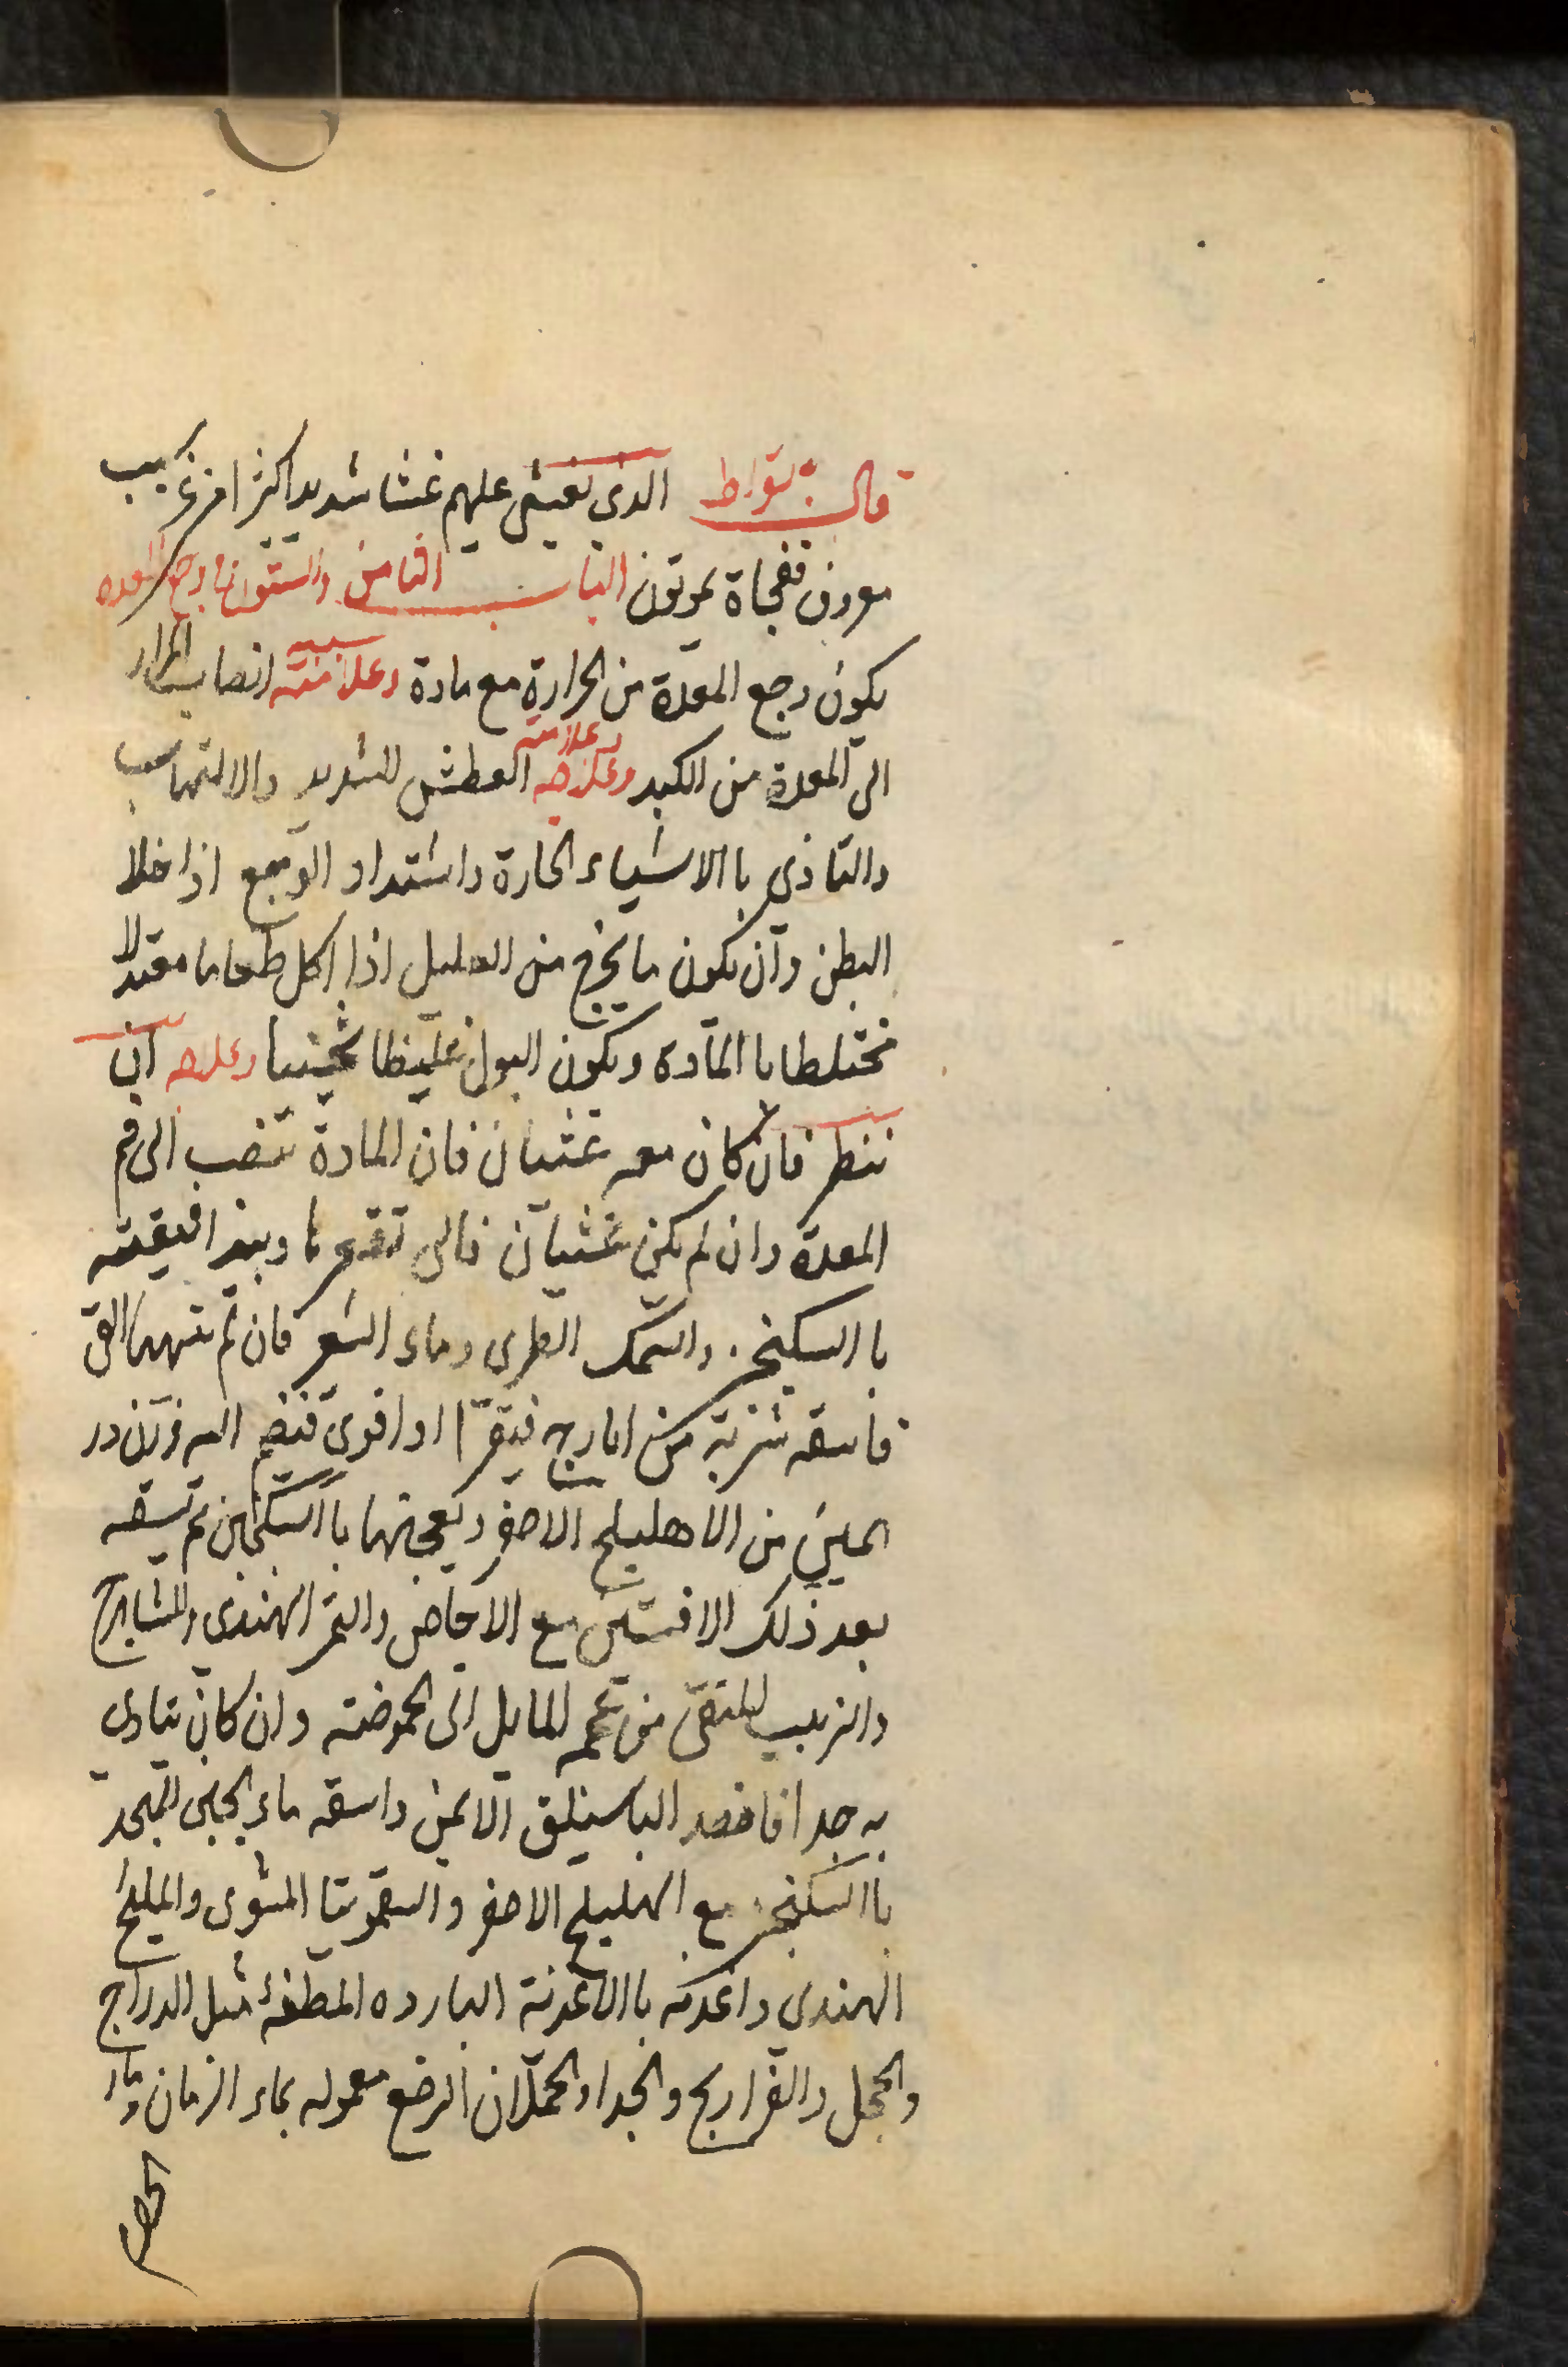 قال بقراط الذي يغشى عليهم غشا شديدا كثيرا من غير سبب
معروف ففجاة يموتون الباب الثامن والستون في وجع المعده
يكون وجع المعدة من الحرارة مع مادة وعلامته سببه انصاب المرار
الى المعدة من الكبد وعلاجه وعلامته العطش الشديد والالتهاب
والتاذي باالاشياء الحارة واشتداد الوجع اذا خلا
البطن وان يكون ما يخرج من العليل اذا اكل طعاما معتدلا
مختلطا باالمادة ويكون البول غليظا ثخينا وعلاجه ان
ننظر فان كان معه غثيان فان المادة تنصب الى فم
المعدة وان لم يكن غثيان فالى قعرها
باالسكنجبين والسمك الطري وماء الشعير فان لم القي
فاسقه شربة من ايارج فيقرا او اقوي فتضم اليه وزن در
همين من الاهليلج الاصفر ويعجنهما باالسكنجبين ثم تسقه
بعد ذلك الافسنتين مع الاجاص والتمر الهندي والشاهترج
والزبيب المنقى من عجمه المايل الى الحموضة وان كان يتاذى
به جدا فافصد الباسليق الايمن واسقه ماء الجبن المتخذ
باالسكنجبين مع الهليلج الاصفر والسقمونيا المشوى والمليح
الهندى واغذيه باالاغذية البارده المطفئه مثل الدراج
والحجل والفراريج والجدا والحملان الرضع معموله بماء الرمان وماء
الحصرم